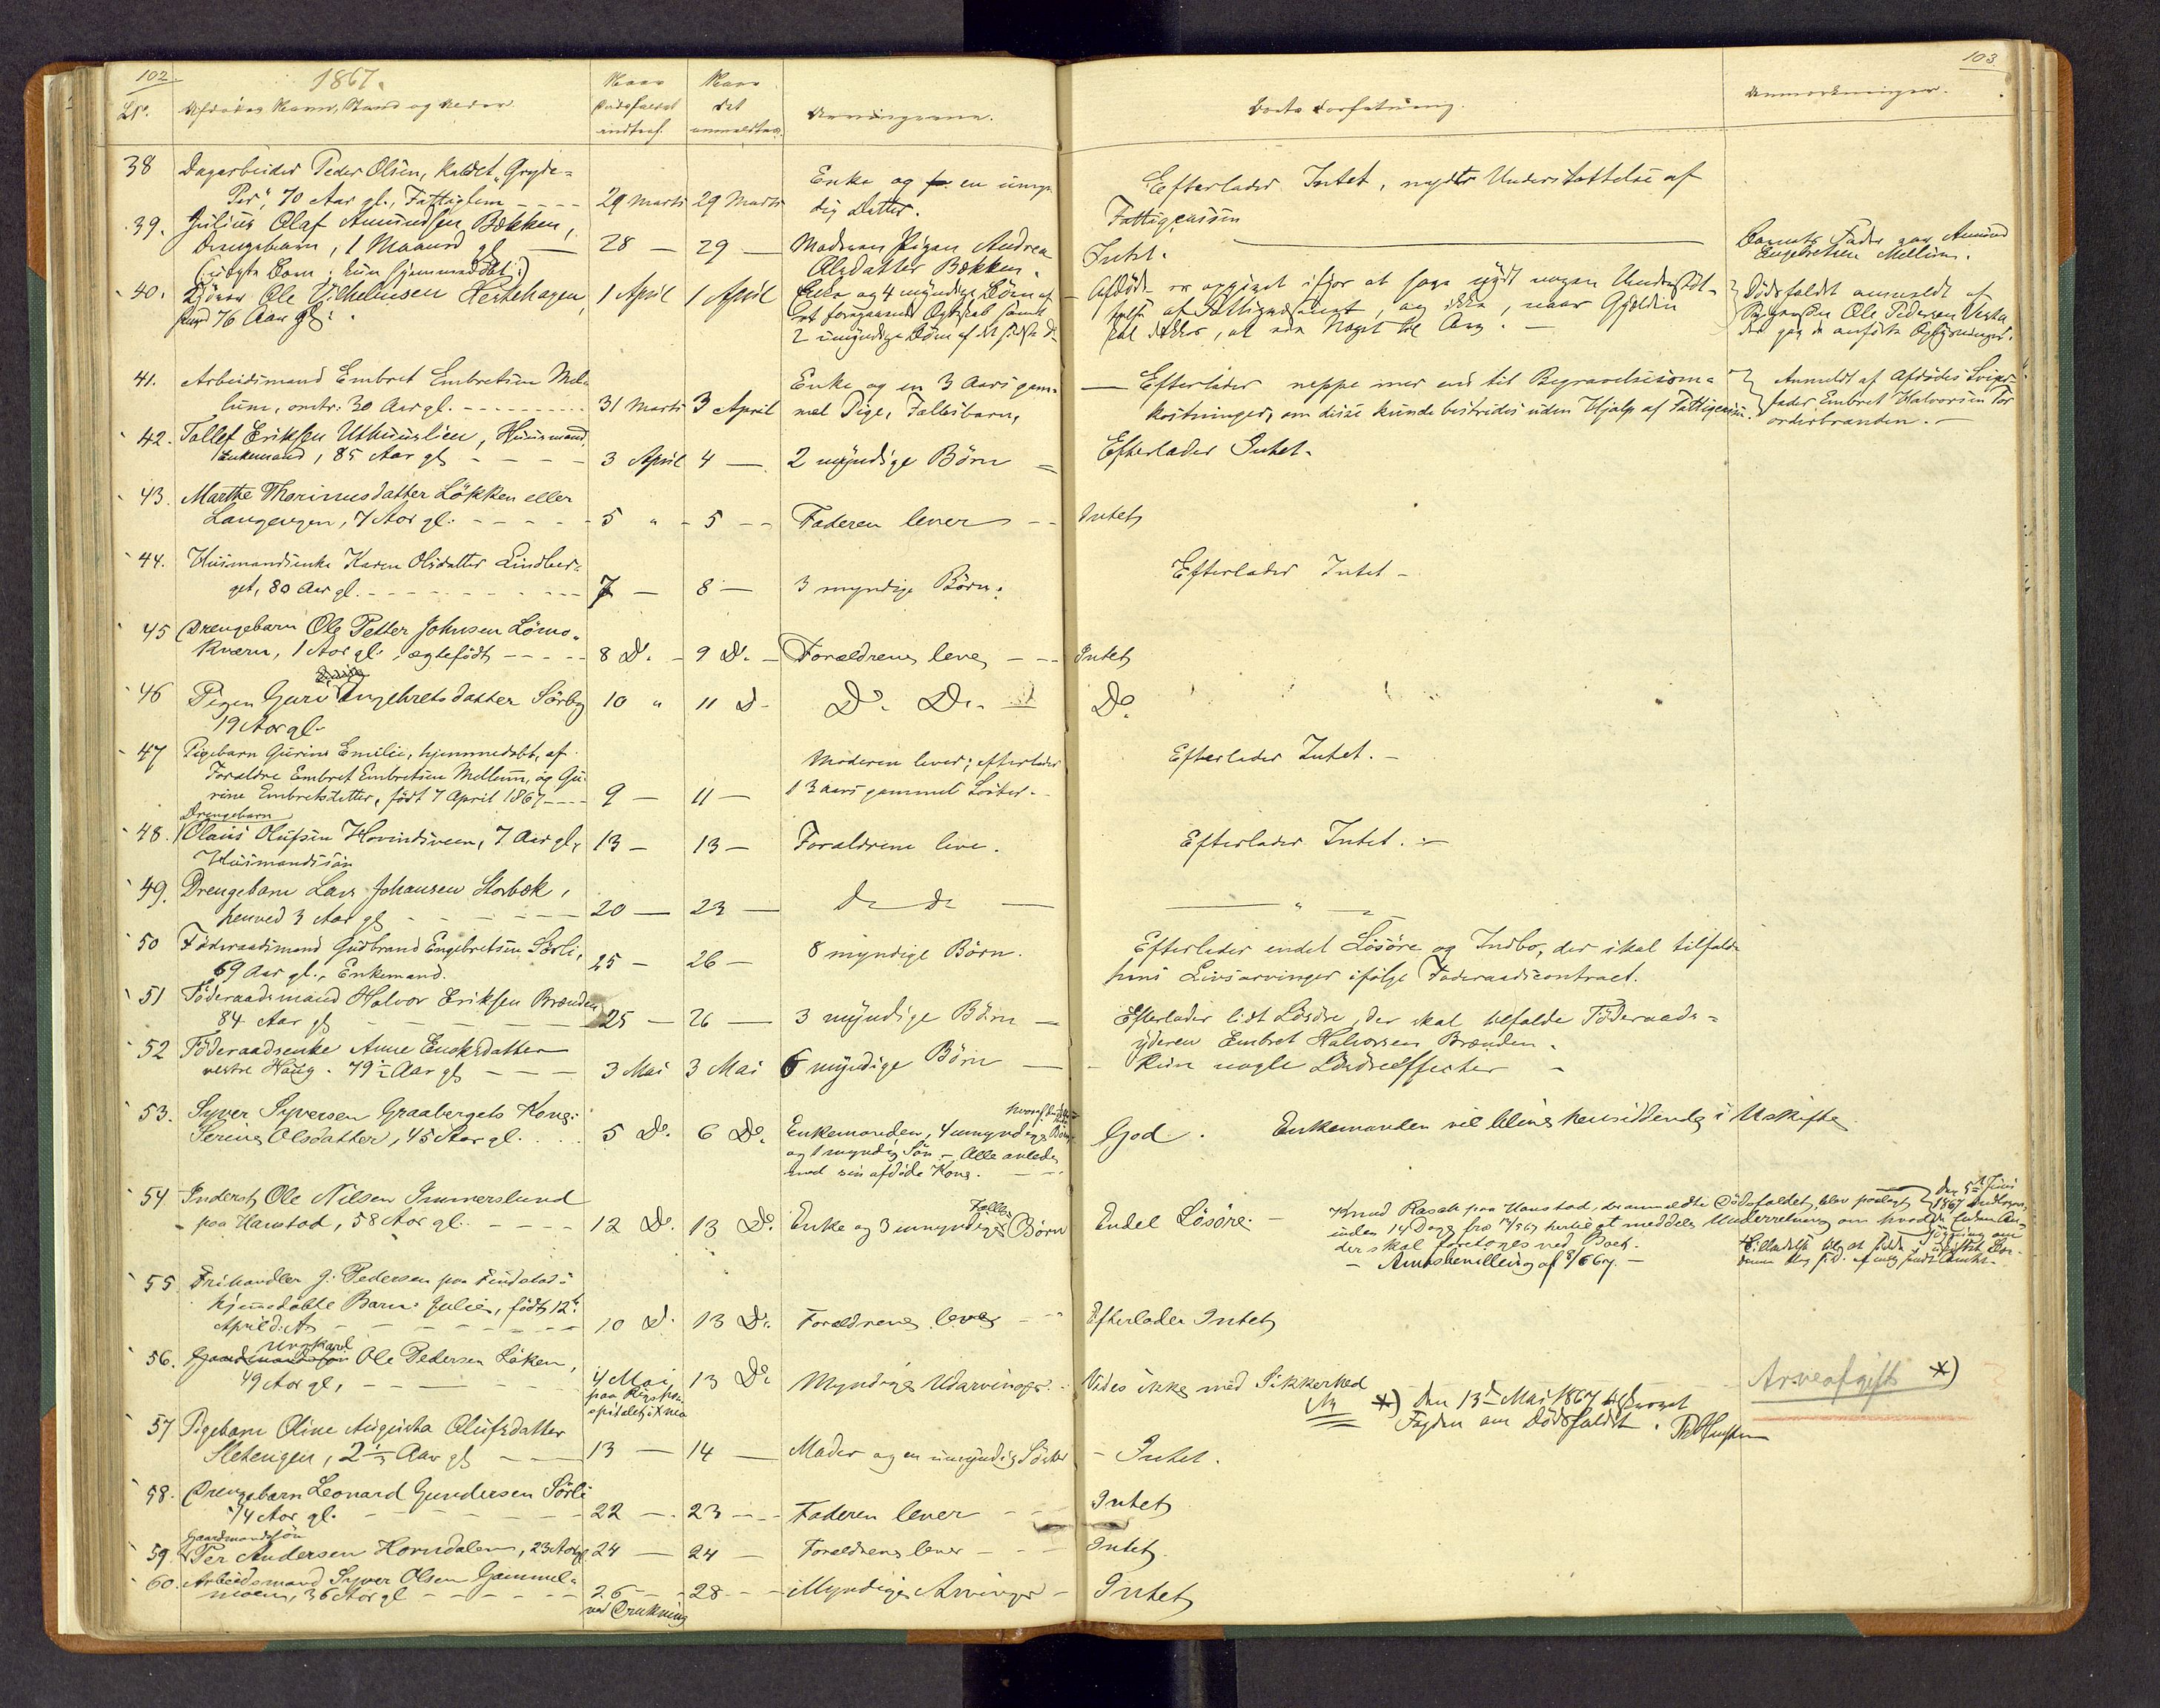 102.
1867.
No.
Afdødes Navn, Stand og Alder.
Naar Dødsfaldet indtraf.
Naar det anmeldtes.
Arvingerne.
103.
Boets Forfatning.
Anmærkninger.
38 Dagarbeider Peder Olsen, kaldet "Gryde-
Per", 70 Aar gl., Fattiglem - - - - 29 Marts 29 Marts
Enke og en umyn-
dig Datter.
Efterlader Intet, nydt Understøttelse af
Fattigcassen
39. Julius Olaf Amundsen Bækken,
Drengebarn, 1 Maaned gl. — 28 — 29 —
(uægte Barn; kun hjemmedøbt)
Moderen Pigen Andrea
Olsdatter Bækken.
Intet.
Barnets Fader var Amund
Engebretsen Mellum.
40. Ole Vilhelmsen Hestehagen, 1 April 1 April
76 Aar gl.
Enke og 4 myndige Børn af
Ægteskab samt
2 umyndige Børn af det sidste Do
Afdøde er opgivet ifjor at have nydt nogen Understøt-
telse af Fattigvæsenet, og ikke, naar Gjælden
skal dækkes, at noget til Arv. —
Dødsfaldet anmeldt af
Ole Pedersen
der gav de anførte Oplysninger.
41. Arbeidsmand Embret Embretsen Mel-
lum, omtr. 30 Aar gl. - - - - 31 Marts 3 April
Enke og en 3 Aars gam-
mel Pige, Fællesbarn,
— Efterlader neppe mer end til Begravelsesom-
kostninger, om disse kunde bestrides uden Hjælp af Fattigcassen.
Anmeldt af Afdødes Sviger-
fader Embret Halvorsen
42. Tollef Eriksen Uthuuslien, Huusmand,
Enkemand, 85 Aar gl. - - - 3 April 4 — 2 myndige Børn — Efterlader Intet.
43. Marthe Thorinusdatter Løkken eller
Langengen, 7 Aar gl. - - - - 5 " - 5 - - Faderen lever - - Intet
44. Huusmandsenke Karen Olsdatter Lindber-
get, 80 Aar gl. - - - - 7 — 8 — 3 myndige Børn. Efterlader Intet -
45 Drengebarn Ole Petter Johnsen Lømo-
kværn, 1 Aar gl., ægtefødt - - - - 8 Do. - 9 Do. - Forældrene lever - - Intet
46 Pigen Guri Engebretsdatter Sørby 10 " 11 Do Do. Do. Do.
19 Aar gl.
47 Pigebarn Gurine Emilie, hjemmedøbt, af
Forældre Embret Embretsen Mellum, og Gu-
rine Embretsdatter, født 7 April 1867 - - - 9 — 11 —
Moderen lever; efterlader
1 3 aars gammel Søster.
Efterlader Intet. -
Drengebarn
48. Olaus Olufsen Hovindsveen, 7 Aar gl., 13 — 13 — Forældrene leve. Efterlader Intet. —
Huusmandssøn
49. Drengebarn Lars Johansen Storbæk,
henved 3 Aar gl. - - - 20 — 23 — Do Do — — " —
50 Føderaadsmand Gudbrand Engebretsen Sørli,
69 Aar gl., Enkemand. 25 — 26 — 8 myndige Børn.
Efterlader endel Løsøre og Indbo, der skal tilfalde
hans Livsarvinger ifølge Føderaadscontract.
51 Føderaadsmand Halvor Eriksen Brænden
84 Aar gl. - - - 25 — 26 — 3 myndige Børn —
Efterlader lidt Løsøre, der skal tilfalde Føderaads-
yderen Embret Halvorsen Brænden.
52 Føderaadsenke Anne Enoksdatter
vestre Haug. 79½ Aar gl. — — — 3 Mai 3 Mai 6 myndige Børn — - Kun nogle Løsøreeffecter -
53. Syver Syversen Graabergets Kone:
Serine Olsdatter, 45 Aar gl. . . . 5 Do. 6 Do.
Enkemanden, 4 umyndige Børn
og 1 myndig Søn. - Alle avlede
med sin afdøde Kone. - - -
God. Enkemanden vil blive hensiddende i Uskifte
54 Inderst Ole Nilsen Immerslund
paa Harstad, 58 Aar gl. - - - - 12 Do. 13 Do.
Fælles
Enke og 3 umyndige Børn
Endel Løsøre. -
Knud Rasch paa Harstad, der anmeldte Dødsfaldet, blev paalagt
inden 14 Dage fra 13/5 67 hertil at meddele Underretning om hvad
der skal foretages ved Boet.
- Amtsbevilling af 8/6 67. -
Den 5te Juni
1867
Tilladelse til at sidde i uskiftet Bo.
55. Frihandler J. Pedersen paa Findstad's
hjemmedøbte Barn: Julie, født 12te
April d. A. - - - - 10 Do. 13 Do. Forældrene leve - - Efterlader Intet
56. Ungkarl Ole Pedersen Løken,
49 Aar gl, - - - - 4 Mai 13 Do. Myndige Udarvinger. Vides ikke med Sikkerhed
paa Rigsho-
spitalet i Xnia
*) Den 13de Mai 1867 tilskrevet
Fogden om Dødsfaldet.
Arveafgift *)
57 Pigebarn Oline Augusta Olufsdatter
Sletengen, 2½ Aar gl. - - - 13 — 14 — Moder og en umyndig Søster - Intet.
58. Drengebarn Leonard Gundersen Sørli
14 Aar gl. - - - 22 - - 23 - - Faderen lever - - Intet
Gaardmandssøn
59. Per Andersen Horndalen, 23 Aar gl. 24 — 24 — Forældrene lever - - Intet.
60. Arbeidsmand Syver Olsen Gammel-
moen, 36 Aar gl - - - - 26 - - 28 - - Myndige Arvinger - Intet
ved Drukning